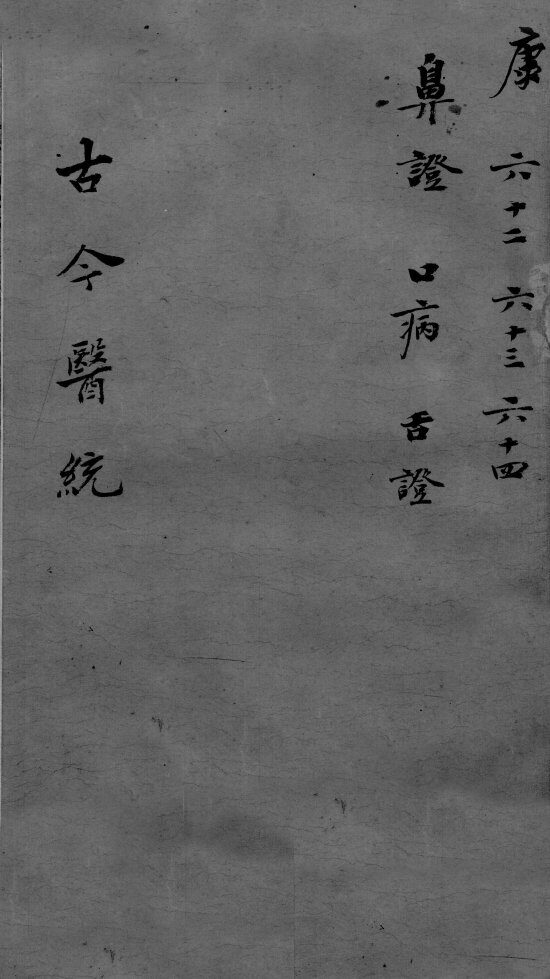 康 六十二 六十三 六十四
鼻證 口病 舌證
古今醫統